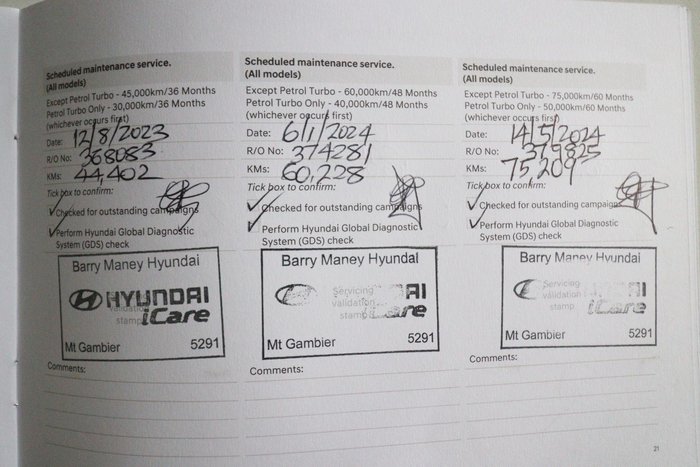 Scheduled maintenance service.
(All models)
Except Petrol Turbo - 45,000km/36 Months
Petrol Turbo Only - 30,000km/36 Months
(whichever occurs first)
Date: 12/8/2023
R/O No: 368083
KMs: 44,402
Tick box to confirm:
Checked for outstanding campaigns
Perform Hyundai Global Diagnostic
System (GDS) check
Barry Maney Hyundai
HYUNDAI
validation
stamp
iCare
Mt Gambier 5291
Comments:
Scheduled maintenance service.
(All models)
Except Petrol Turbo - 60,000km/48 Months
Petrol Turbo Only - 40,000km/48 Months
(whichever occurs first)
Date: 6/1/2024
R/O No: 374281
KMs: 60,228
Tick box to confirm:
Checked for outstanding campaigns
Perform Hyundai Global Diagnostic
System (GDS) check
Barry Maney Hyundai
Servicing
validation AI
stamp Care
Mt Gambier 5291
Comments:
Scheduled maintenance service.
(All models)
Except Petrol Turbo - 75,000km/60 Months
Petrol Turbo Only - 50,000km/60 Months
(whichever occurs first)
Date: 14/5/2024
R/O No: 379825
KMs: 75,209
Tick box to confirm:
Checked for outstanding campaigns
Perform Hyundai Global Diagnostic
System (GDS) check
Barry Maney Hyundai
Servicing
validation DAI
stamp iCare
Mt Gambier 5291
Comments:
21